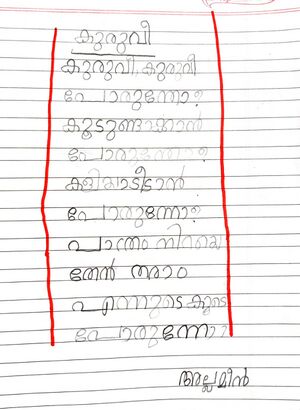 കുരുവീ
കുരുവീ, കുരുവീ
പോരുന്നോ?
കൂടുണ്ടാക്കാൻ
പോരുന്നോ?
കളിയാടീടാൻ
പോരുന്നോ?
പാത്രം നിറയെ
തേൻ തരാം
എന്നുടെ കൂടെ
പോരുന്നോ?
അല്ലമീൻ